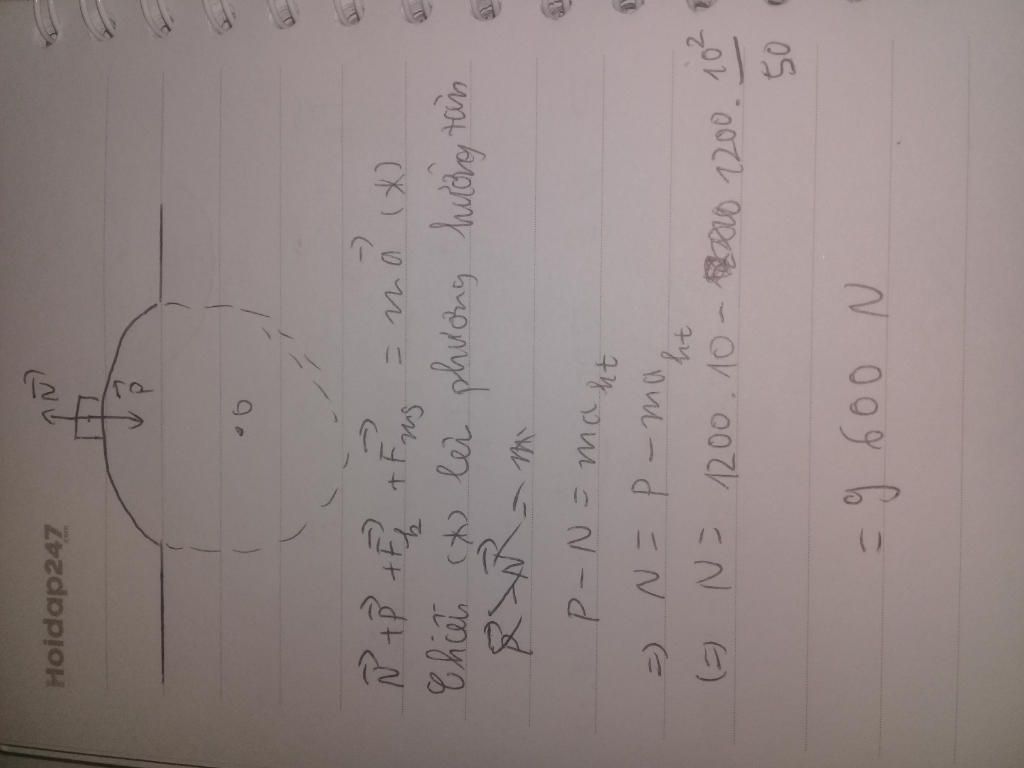 Hoidap247
.com
N⃗
P⃗
O
N⃗ + P⃗ + F⃗h + F⃗ms = m a⃗ (*)
Chiếu (*) lên phương hướng tâm
P - N = ma ht
=) N = P - ma ht
(=) N = 1200 . 10 - 1200 . 10²/50
= 9 600 N